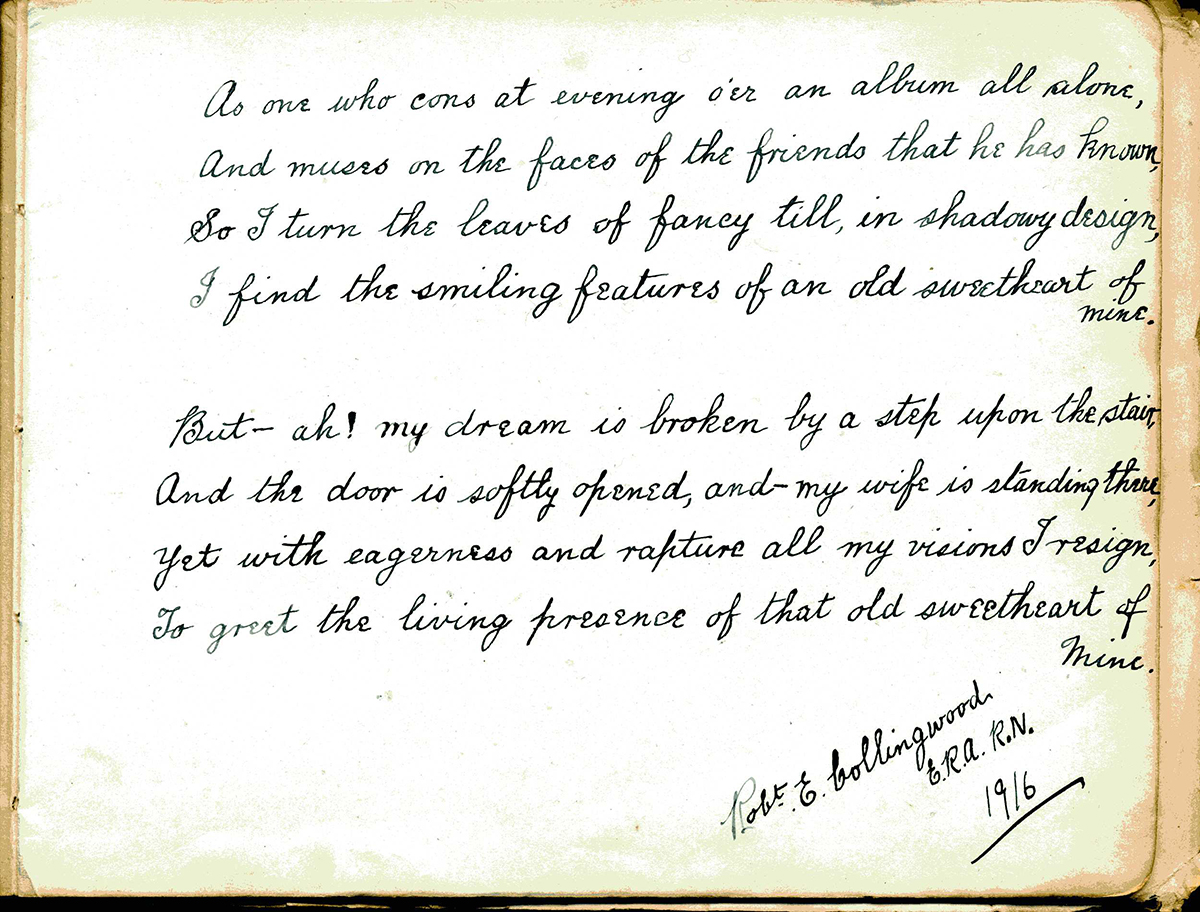 As one who cons at evening o'er an album all alone,
And muses on the faces of the friends that he has known,
So I turn the leaves of fancy till, in shadowy design,
I find the smiling features of an old sweetheart of
mine.
But— ah! my dream is broken by a step upon the stair,
And the door is softly opened, and—my wife is standing there,
Yet with eagerness and rapture all my visions I resign,
To greet the living presence of that old sweetheart of
Mine.
Robt. E. Collingwood.
E.R.A. R.N.
1916